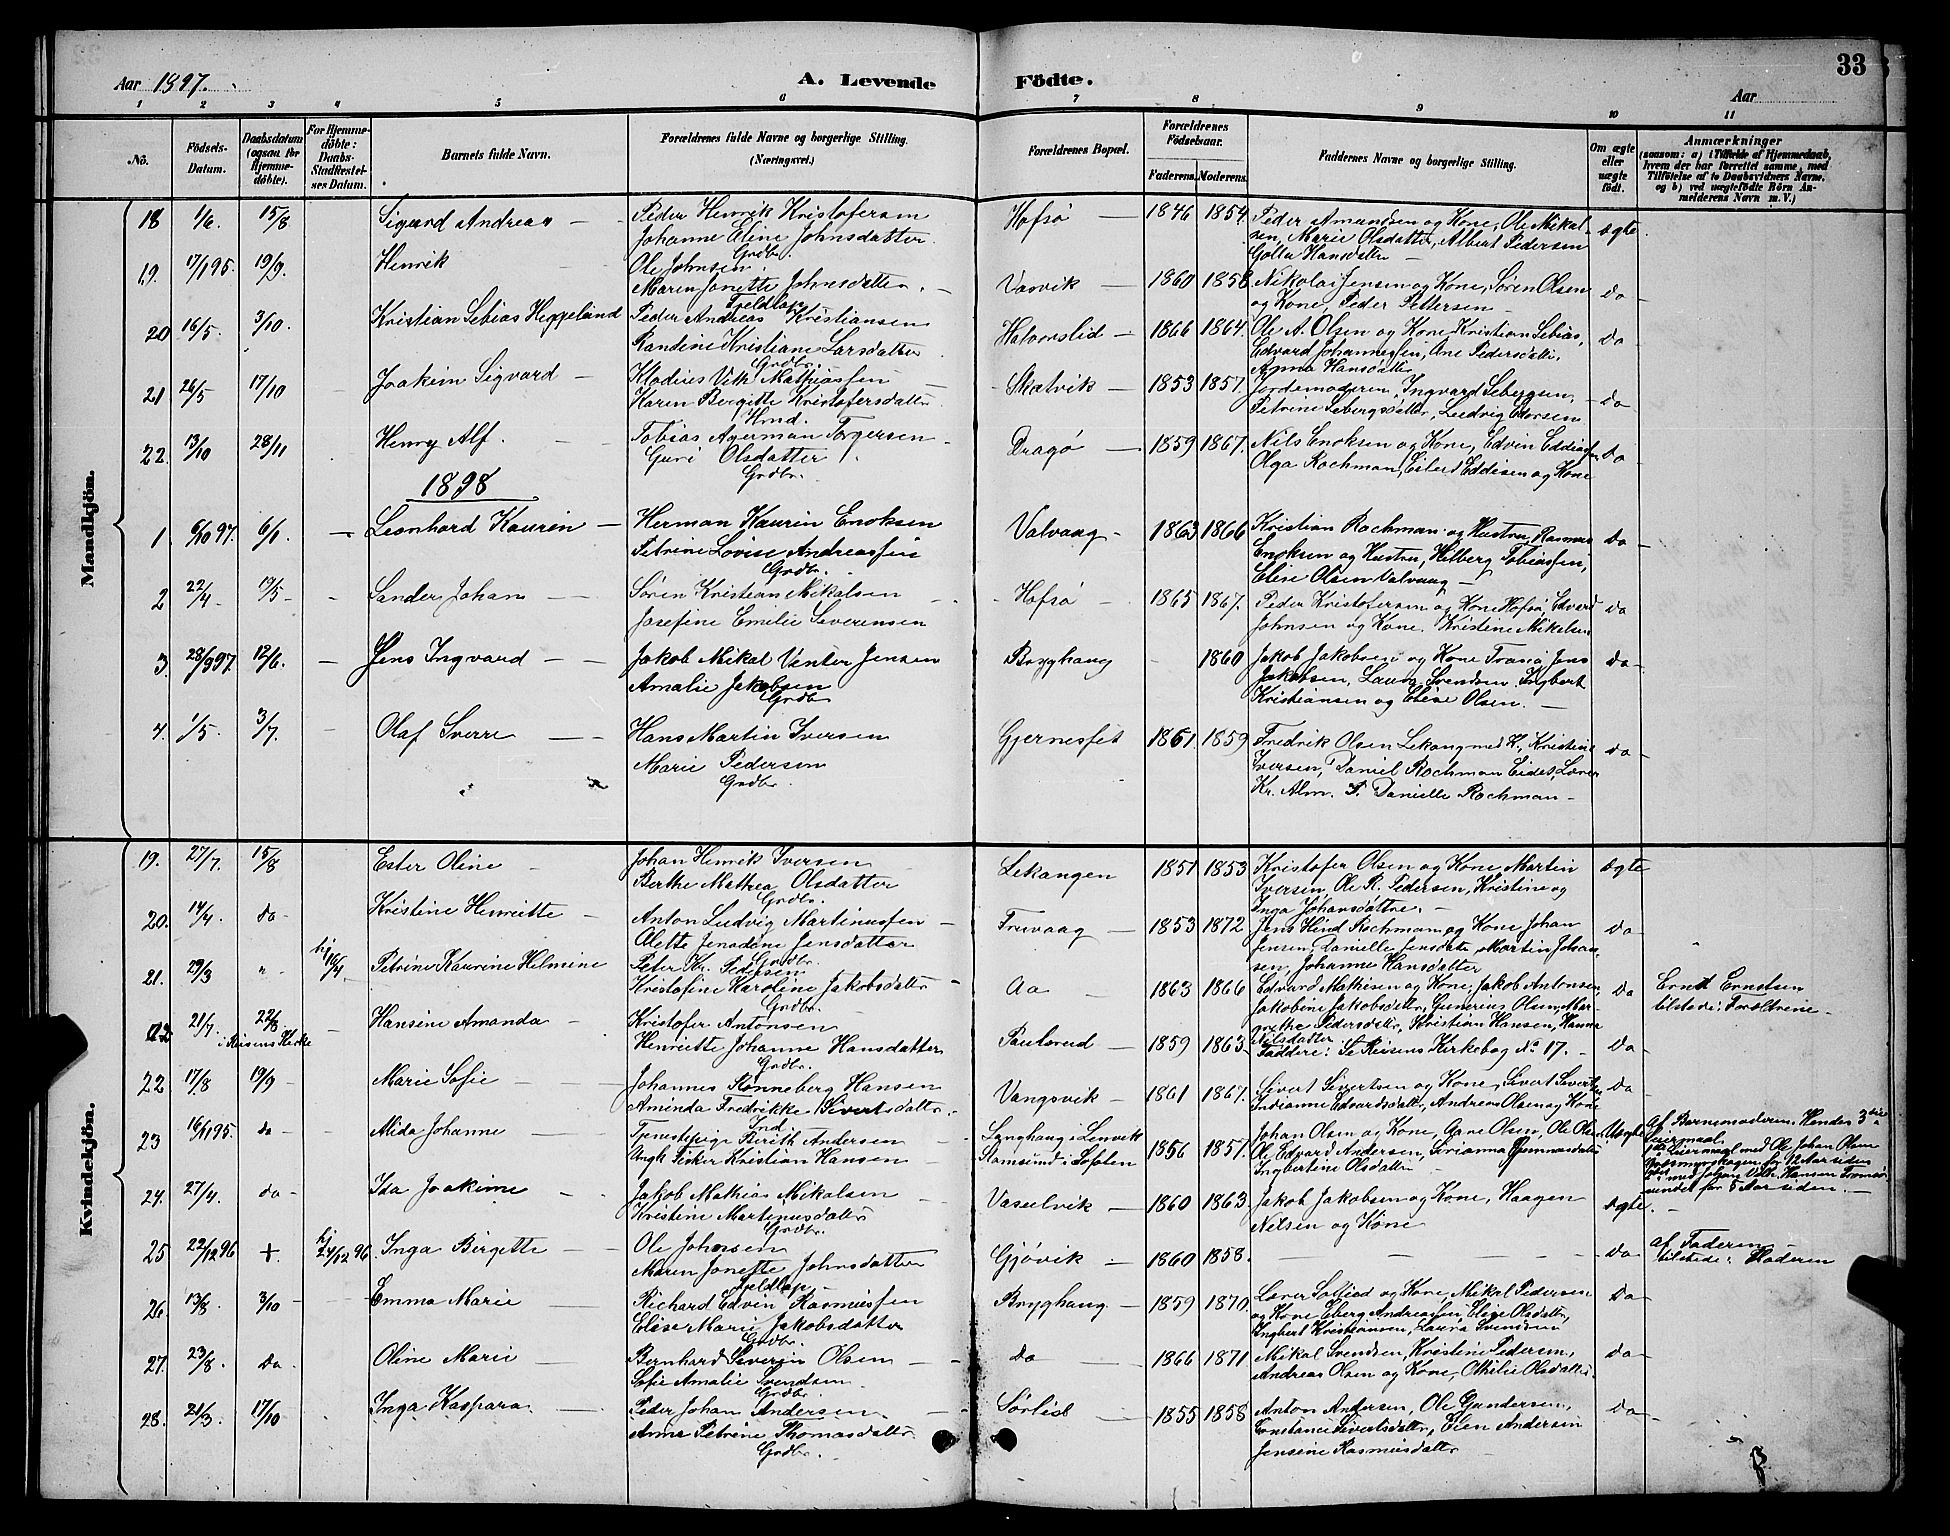 Aar 1897.
A. Levende Födte.
Aar
33
1 2 3 4 5 6 7 8 9 10 11
No.
Födsels-Datum.
Daabsdatum (ogsaa for Hjemme-döbte).
For Hjemme-döbte: Daabs-Stadfestel-ses Datum.
Barnets fulde Navn.
Forældrenes fulde Navne og borgerlige Stilling. (Næringsvei.)
Forældrenes Bopæl.
Forældrenes Födselsaar.
Faderens. Moderens.
Faddernes Navne og borgerlige Stilling.
Om ægte eller uægte födt.
Anmærkninger (saasom: a) i Tilfælde af Hjemmedaab, hvem der har forrettet samme, med Tilföielse af to Daabsvidners Navne, og b) ved uægtefödte Börn An-melderens Navn m.V.)
Mandkjön.
18 1/6. 15/8 Sigvard Andreas
Peder Henrik Kristofersen
Johanne Eline Johnsdatter
Grdbr.
Hofsø 1846 1854.
Peder Amandsen og Kone, Ole Mikal-
sen, Marie Olsdatter, Albert Pedersen
Hansdatter
Ægte
19. 17/1 95. 19/9. Henrik
Ole Johnsen
Maren Jonette Johnsdatter.
Fjeldlap
Vasvik 1860 1858
Nikolai Jensen og Kone, Sören Olsen
og Kone, Peder Pettersen
Do
20 16/5. 3/10. Kristian Sebias Heggelund
Peder Andreas Kristiansen
Randine Kristiane Larsdatter
Grdbr.
Halvorslid 1866 1864.
Ole A. Olsen og Kone Kristian Sebias,
Edvard Johannessen, Ane Pedersdatter,
Anna Hansdatter
Do
21 26/5 17/10 Joakim Sigvard
Klodius Vik Mathiassen
Karen Bergitte Kristofersdatter
Hmd.
Skatvik 1853 1857.
Jordemoderen, Ingvard
Petrine Ludvig
Do
22. 13/10 28/11 Henry Alf.
Tobias Agerman Torgersen
Guri Olsdatter
Grdbr.
Dragø 1859 1867.
Nils Enoksen og Kone, Edvin
Olga Rochman, Eddisen og Kone
Do
1898
1. 6/10 97. 6/1. Leonhard Kaurin
Herman Kaurin Enoksen
Petrine Lovise Andreassen
Grdbr.
Valvaag 1863 1866
Kristian Rochman og Hustru, Rasmus
Enoksen og Hustru, Hilberg Tobiassen,
Elise Olsen Valvaag
Do
2 22/4 19/5 Sander Johan
Sören Kristian Mikalsen
Josefine Emilie Severinsen
Hofsø 1865 1867.
Peder Kristofersen og Kone Hofsø, Edvard
Johnsen og Kone. Kristine Mikalsen
Do
3. 28/9 97. 12/6. Jens Ingvard
Jakob Mikal Venter Jensen
Amalie Jakobsen
Grdbr
Bryghaug 1860
Jakob Jakobsen og Kone Jens
Jakobsen, Laura Svendsen Ingbert
Kristiansen og Elise Olsen.
Do
4. 1/5. 3/7. Olaf Sverre
Hans Martin Iversen
Marie Pedersen
Grdbr.
Gjernesfet 1861 1859
Fredrik Olsen Lekang med K., Kristine
Iversen, Daniel Rochman Eidet, Lærer
Kr. Alm. F. Danielle Rochman
Do
Kvindekjön.
19. 27/7. 15/8 Ester Oline
Johan Henrik Iversen
Berthe Mathea Olsdatter
Grdbr.
Lekangen 1851 1853
Kristofer Olsen og Kone, Martin
Iversen, Ole R. Pedersen, Kristine og
Inga Johansdatter.
Ægte
20. 14/4. do Kristine Henriette
Anton Ludvig Martinussen
Olette Jensdatter
Grdbr.
Trevaag 1853 1872
Jens Hind Rochman og Kone Johan
Jensen, Danielle Jensdatter Martin Johan-
sen, Johanne Hansdatter
Do
21. 29/3 " hj 16/4. Petrine Kaurine Helmine
Peter Kr. Pedersen
Kristofine Karoline Jakobsdatter
Grdbr.
Aa 1863 1866
Edvard Mathisen og Kone, Jakob Antonsen,
Jakobine Jakobsdatter, Gunerius Olsen, Mar-
grethe Pedersdatter, Kristian Hansen, Hanna
Nilsdatter
Do
Ernst Ernstsen
tilstede: Forældrene
21/7. 22/8 i Reisens Kirke Hansine Amanda
Kristofer Antonsen
Henriette Johanne Hansdatter
Grdbr.
1859 1863
Faddere: Se Reisens Kirkebog No 17.
Do
22 17/8 19/9 Marie Sofie
Johannes Rønneberg Hansen
Aminda Fredrikke Sivertsdatter.
Ind.
Vangsvik 1861 1867.
Sivert Sivertsen og Kone, Sivert Sivertsen
Indianne Edvardsdatter, Andreas Olsen og Kone
Do
23 16/11 95. do Alida Johanne
Tjenestepige Berith Andersen
Ungk. Fisker Kristian Hansen
Langhaug i Lenvik
Stamsund i Lofoten
1856 1857.
Johan Olsen og Kone, Olsen, Ole Olsen
Ole Edvard Andersen,
Ingbertine Olsdatter
Uægte
Af Barnemoderen. Hendes 3die
Leiermaal.
1ste Leiermaal med Ole Johan Olsen
for 12 Aar siden
2det med Johan Hansen Tromsö-
sundet for 5 Aar siden.
24. 27/4. do. Ida Joakime
Jakob Mathias Mikalsen
Kristine Martinusdatter
Grdbr.
1860 1863.
Jakob Jakobsen og Kone, Haagen
Nilsen og Kone
Ægte.
25 22/12 96 + hj 24/12 96. Inga Birgitte
Ole Johnsen
Maren Jonette Johnsdatter
Fjeldlap
Gjøvik 1860 1858.
Do
af Faderen
tilstede: Moderen
26. 13/8. 3/10 Emma Marie
Richard Edvin Rasmussen
Elise Marie Jakobsdatter
Grdbr.
Bryghaug. 1859 1870.
Lærer og Kone, Mikal Pedersen
og Kone, Eberg Andreassen, Elise Olsdatter,
Ingbert Kristiansen, Laura Svendsen
Do
27. 23/8. Do. Oline Marie
Bernhard Severin Olsen
Sofie Amalie Svendsen
Grdbr.
do 1866 1871
Mikal Svendsen, Kristine Pedersen,
Andreas Olsen og Kone, Othilie Olsdatter.
Do
28. 21/3. 17/10 Inga Kaspara
Peder Johan Andersen
Anne Petrine Thomasdatter
Grdbr.
Sørlid 1855 1858
Anton Andersen, Ole Gundersen,
Constance Sivertsdatter, Elen Andersen
Jensine Rasmusdatter
Do